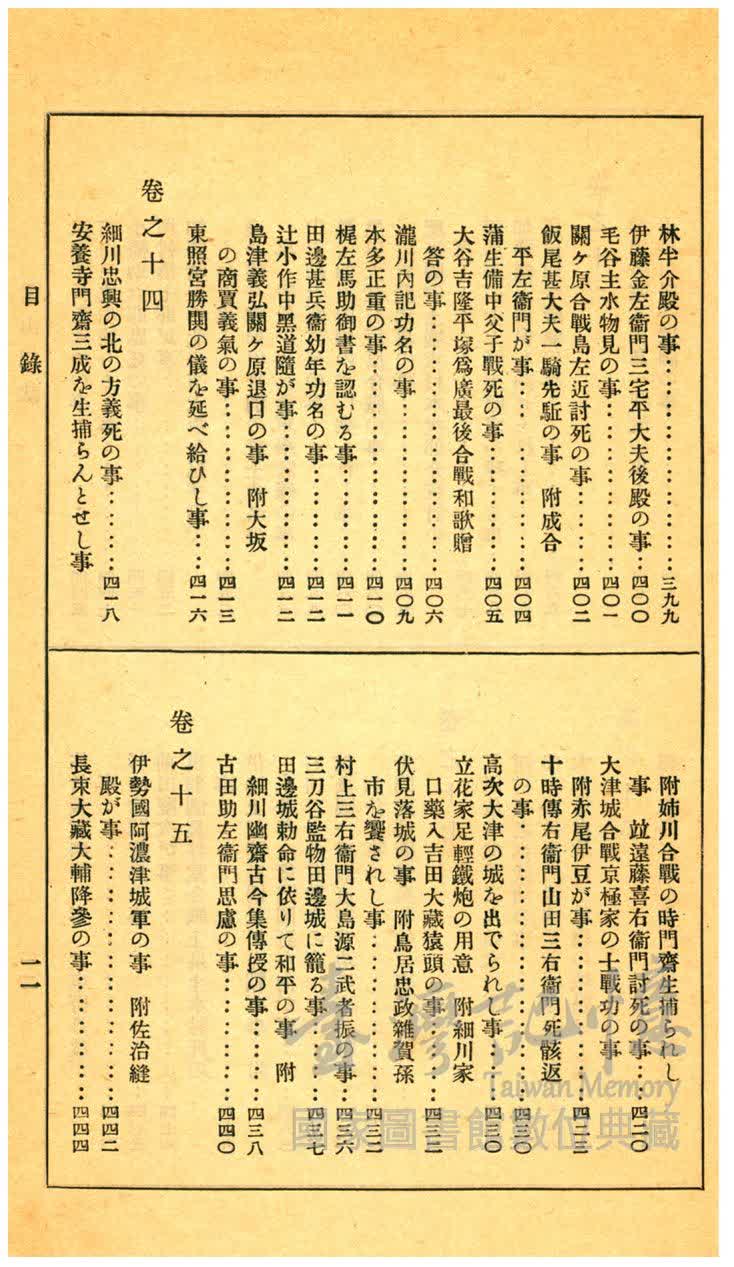 林半介殿の事…………………三九九
伊藤金左衞門三宅平大夫後殿の事…四〇〇
毛谷主水物見の事…………四〇一
關ヶ原合戰島左近討死の事………四〇二
飯尾甚大夫一騎先駈の事　附成合
平左衞門が事…………四〇四
蒲生備中父子戰死の事…………四〇五
大谷吉隆平塚爲廣最後合戰和歌贈
答の事…………………四〇六
瀧川內記功名の事…………四〇九
本多正重の事…………四一〇
梶左馬助御書を認むる事………四一一
田邊甚兵衞幼年功名の事………四一二
辻小作中黑道隨が事…………四一二
島津義弘關ヶ原退口の事　附大坂
の商賈義氣の事…………四一三
東照宮勝鬨の儀を延べ給ひし事…四一六
卷之十四
細川忠興の北の方義死の事………四一八
安養寺門齋三成を生捕らんとせし事
附姉川合戰の時門齋生捕られし
事　竝遠藤喜右衞門討死の事…四二〇
大津城合戰京極家の士戰功の事
附赤尾伊豆が事…………四二三
十時傳右衞門山田三右衞門死骸返
の事…………………四三〇
高次大津の城を出でられし事……四三〇
立花家足輕鐵炮の用意　附細川家
口藥入吉田大藏猿頭の事………四三二
伏見落城の事　附鳥居忠政雜賀孫
市を饗されし事…………四三二
村上三右衞門大島源二武者振の事…四三六
三刀谷監物田邊城に籠る事………四三七
田邊城勅命に依りて和平の事　附
細川幽齋古今集傳授の事………四三八
古田助左衞門思慮の事…………四四〇
卷之十五
伊勢國阿濃津城軍の事　附佐治縫
殿が事…………………四四二
長束大藏大輔降參の事…………四四四
目錄
一一
臺灣記憶
Taiwan Memory
國家圖書館數位典藏